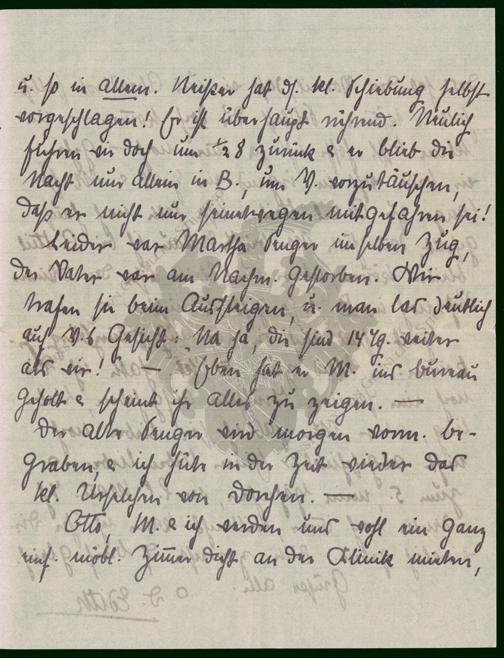 u. so in allem. Neißer hat ds. kl. Schiebung selbst
vorgeschlagen! Er ist überhaupt rührend. Neulich
fuhren wir doch um ½ 8 zurück & er blieb die
Nacht nur allein in B., um V. vorzutäuschen,
daß er nicht nur seinetwegen mitgefahren sei!
Leider war Martha Senger im selben Zug,
der Vater war am Nachm. gestorben. Wir
trafen sie beim Aussteigen, u. man las deutlich
auf V.s Gesicht: Na ja, die sind 14 Tg. weiter
als wir! — Eben hat er M. ins Bureau
geholt & scheint ihr alles zu zeigen. —
Der alte Senger wird morgen vorm. be-
graben, & ich hüte in der Zeit wieder das
kl. Urselchen von Dorchen. —
Otto, M. & ich werden uns wohl ein ganz
einf. möbl. Zimmer dicht an der Klinik mieten,
Grüße alle.
Edith